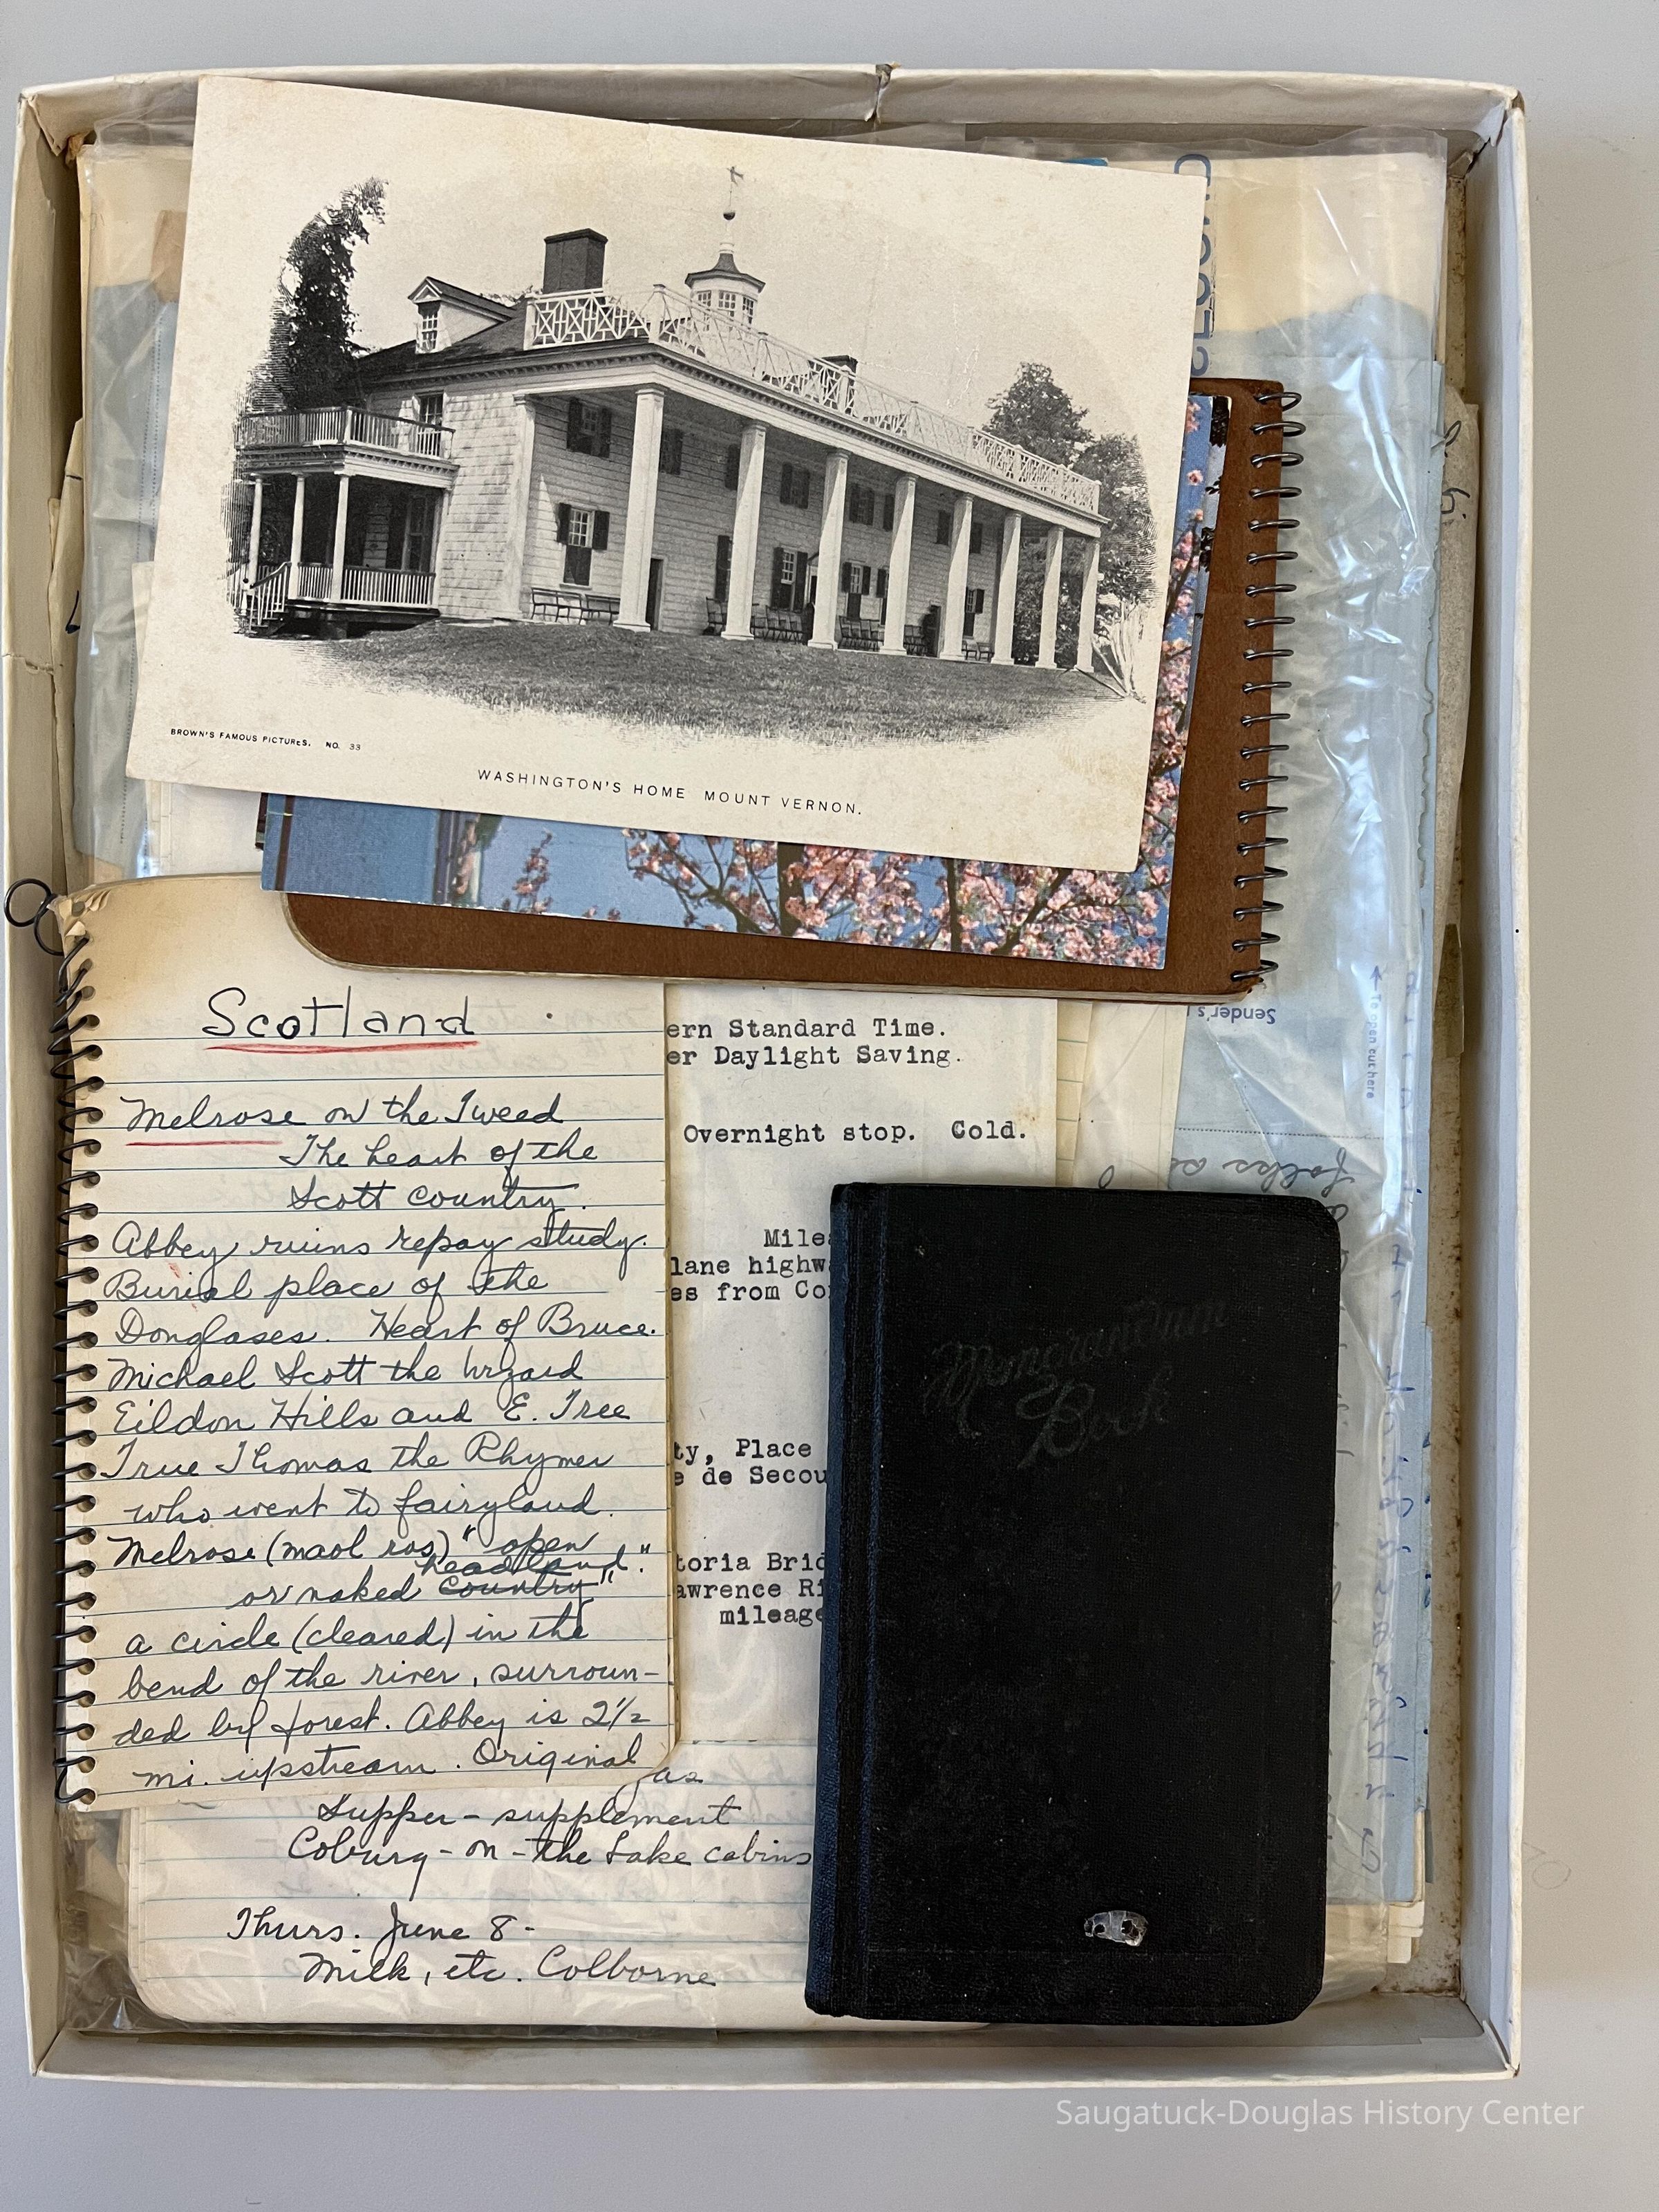 BROWN'S FAMOUS PICTURES. NO. 33
WASHINGTON'S HOME MOUNT VERNON.
Scotland
Melrose on the Tweed
The heart of the
Scott country.
Abbey ruins repay study.
Burial place of the
Douglases. Heart of Bruce.
Michael Scott the wizard
Eildon Hills and E. Tree
True Thomas the Rhymer
who went to fairyland.
Melrose (maol ros) "open
headland."
or naked country"
a circle (cleared) in the
bend of the river, surroun-
ded by forest. Abbey is 2 1/2
mi. upstream. Original
ern Standard Time.
er Daylight Saving.
Overnight stop. Cold.
Milea
lane highw
es from Co
ty, Place
e de Secou
toria Brid
awrence Ri
mileage
Memorandum
Book
as
Supper - supplement
Coburg - on - the Lake cabins
Thurs. June 8 -
Milk, etc. Colborne
Sender's
To open cut here
folks
Saugatuck-Douglas History Center